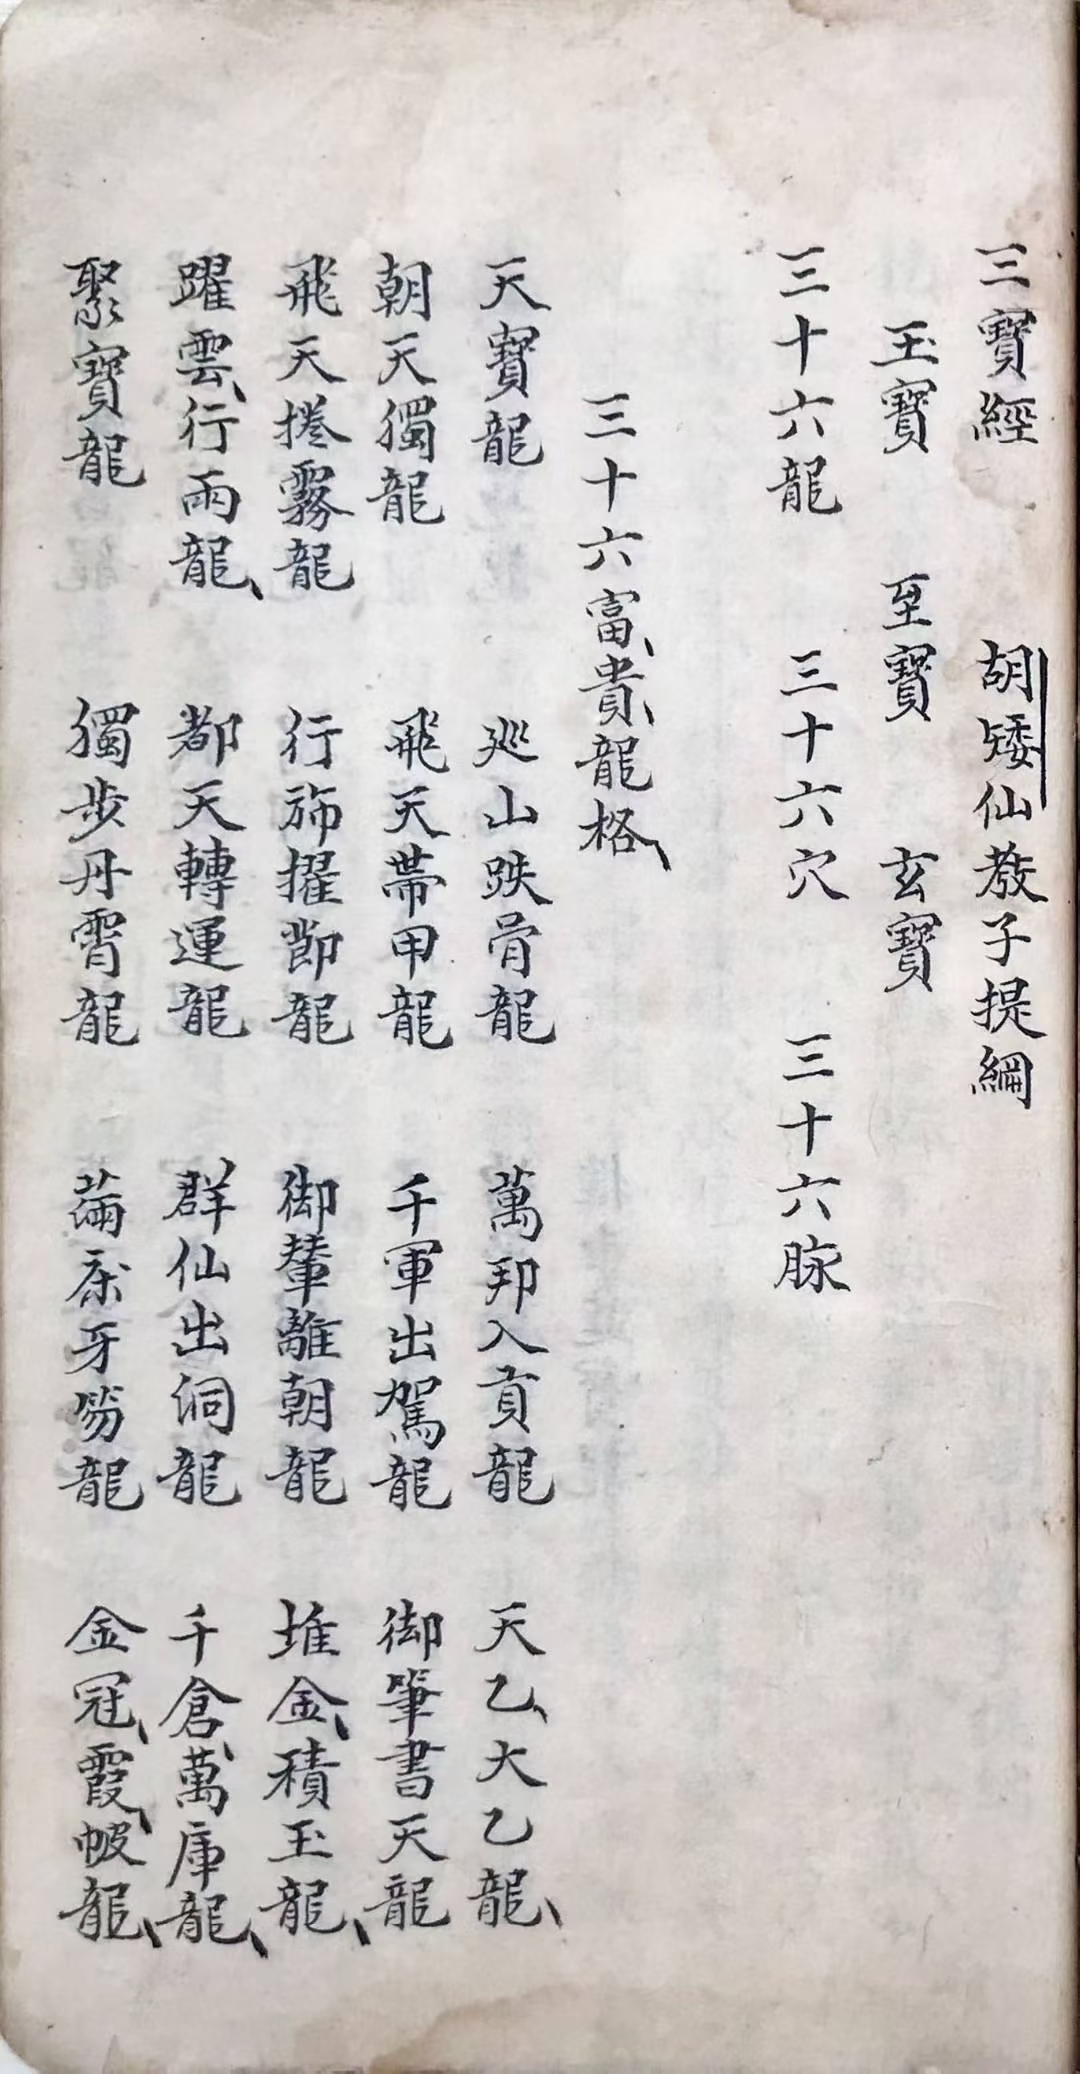 三寶經 胡矮仙教子提綱
玉寶 至寶 玄寶
三十六龍 三十六穴 三十六脉
三十六富、貴、龍格、
天寶龍 巡山跌骨龍 萬邦入貢龍 天乙、大乙龍、
朝天獨龍 飛天帶甲龍 千軍出駕龍 御筆書天龍
飛天捲霧龍 行斾擢節龍 御輦離朝龍 堆金、積玉龍、
躍雲、行雨龍、 都天轉運龍 群仙出洞龍 千倉、萬庫龍、
聚寶龍 獨步丹霄龍 牙笏龍 金冠、霞、帔龍、